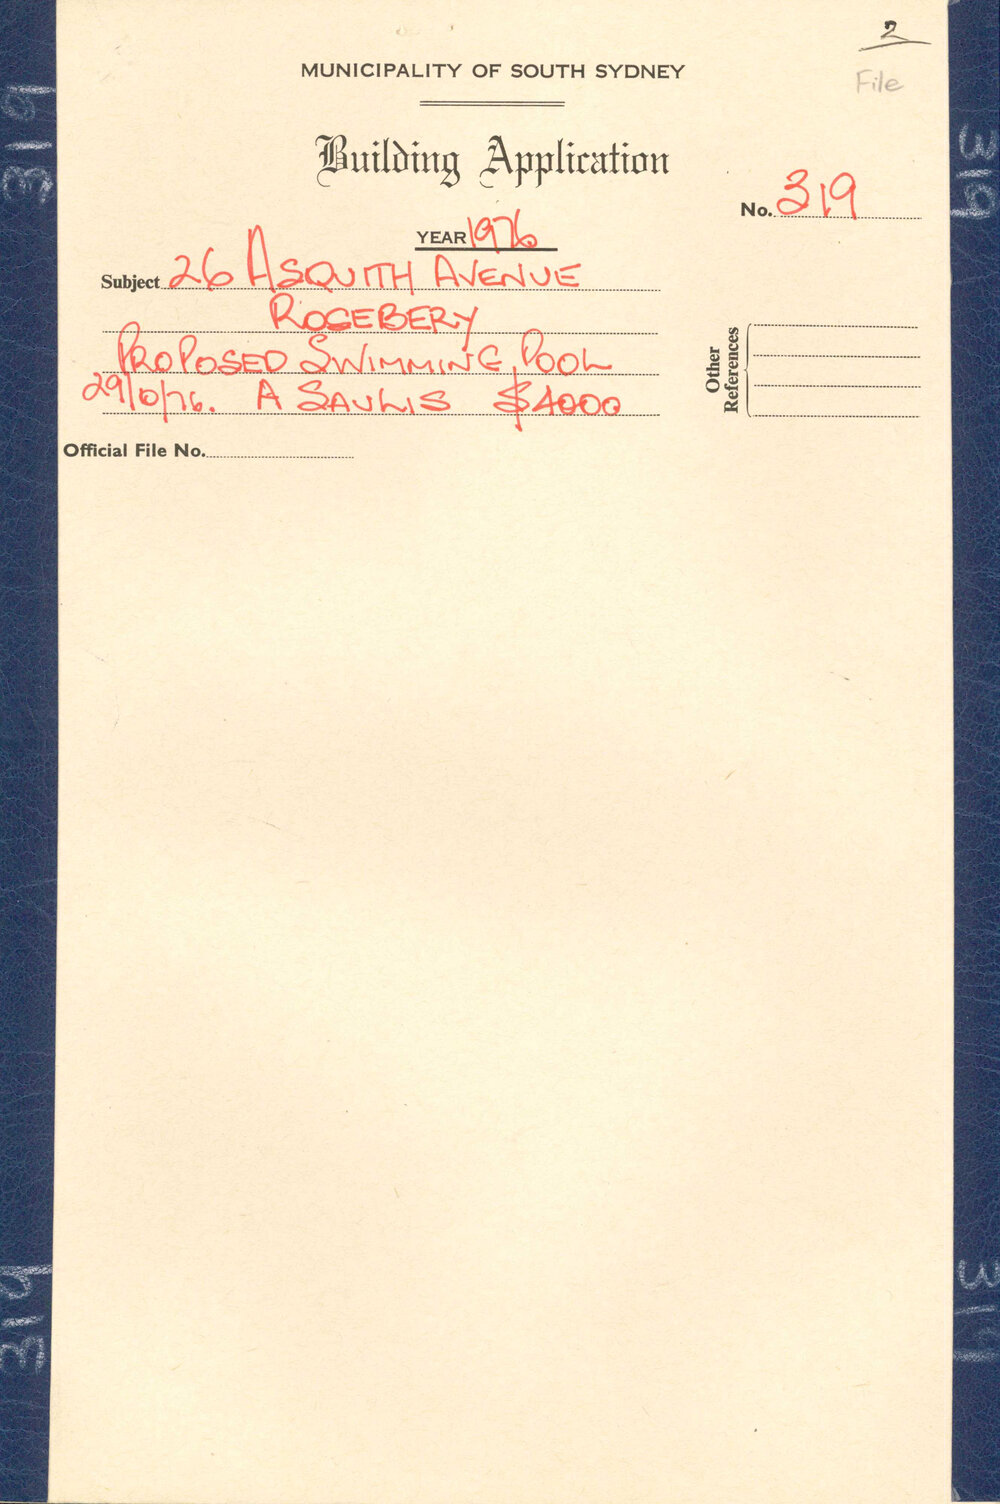 2
File
MUNICIPALITY OF SOUTH SYDNEY
Building Application
No. 319
YEAR 1976
Subject 26 ASQUITH AVENUE
ROSEBERY
PROPOSED SWIMMING POOL
29/10/76. A SAULIS $4000
Other
References
Official File No.
319
319
319
319